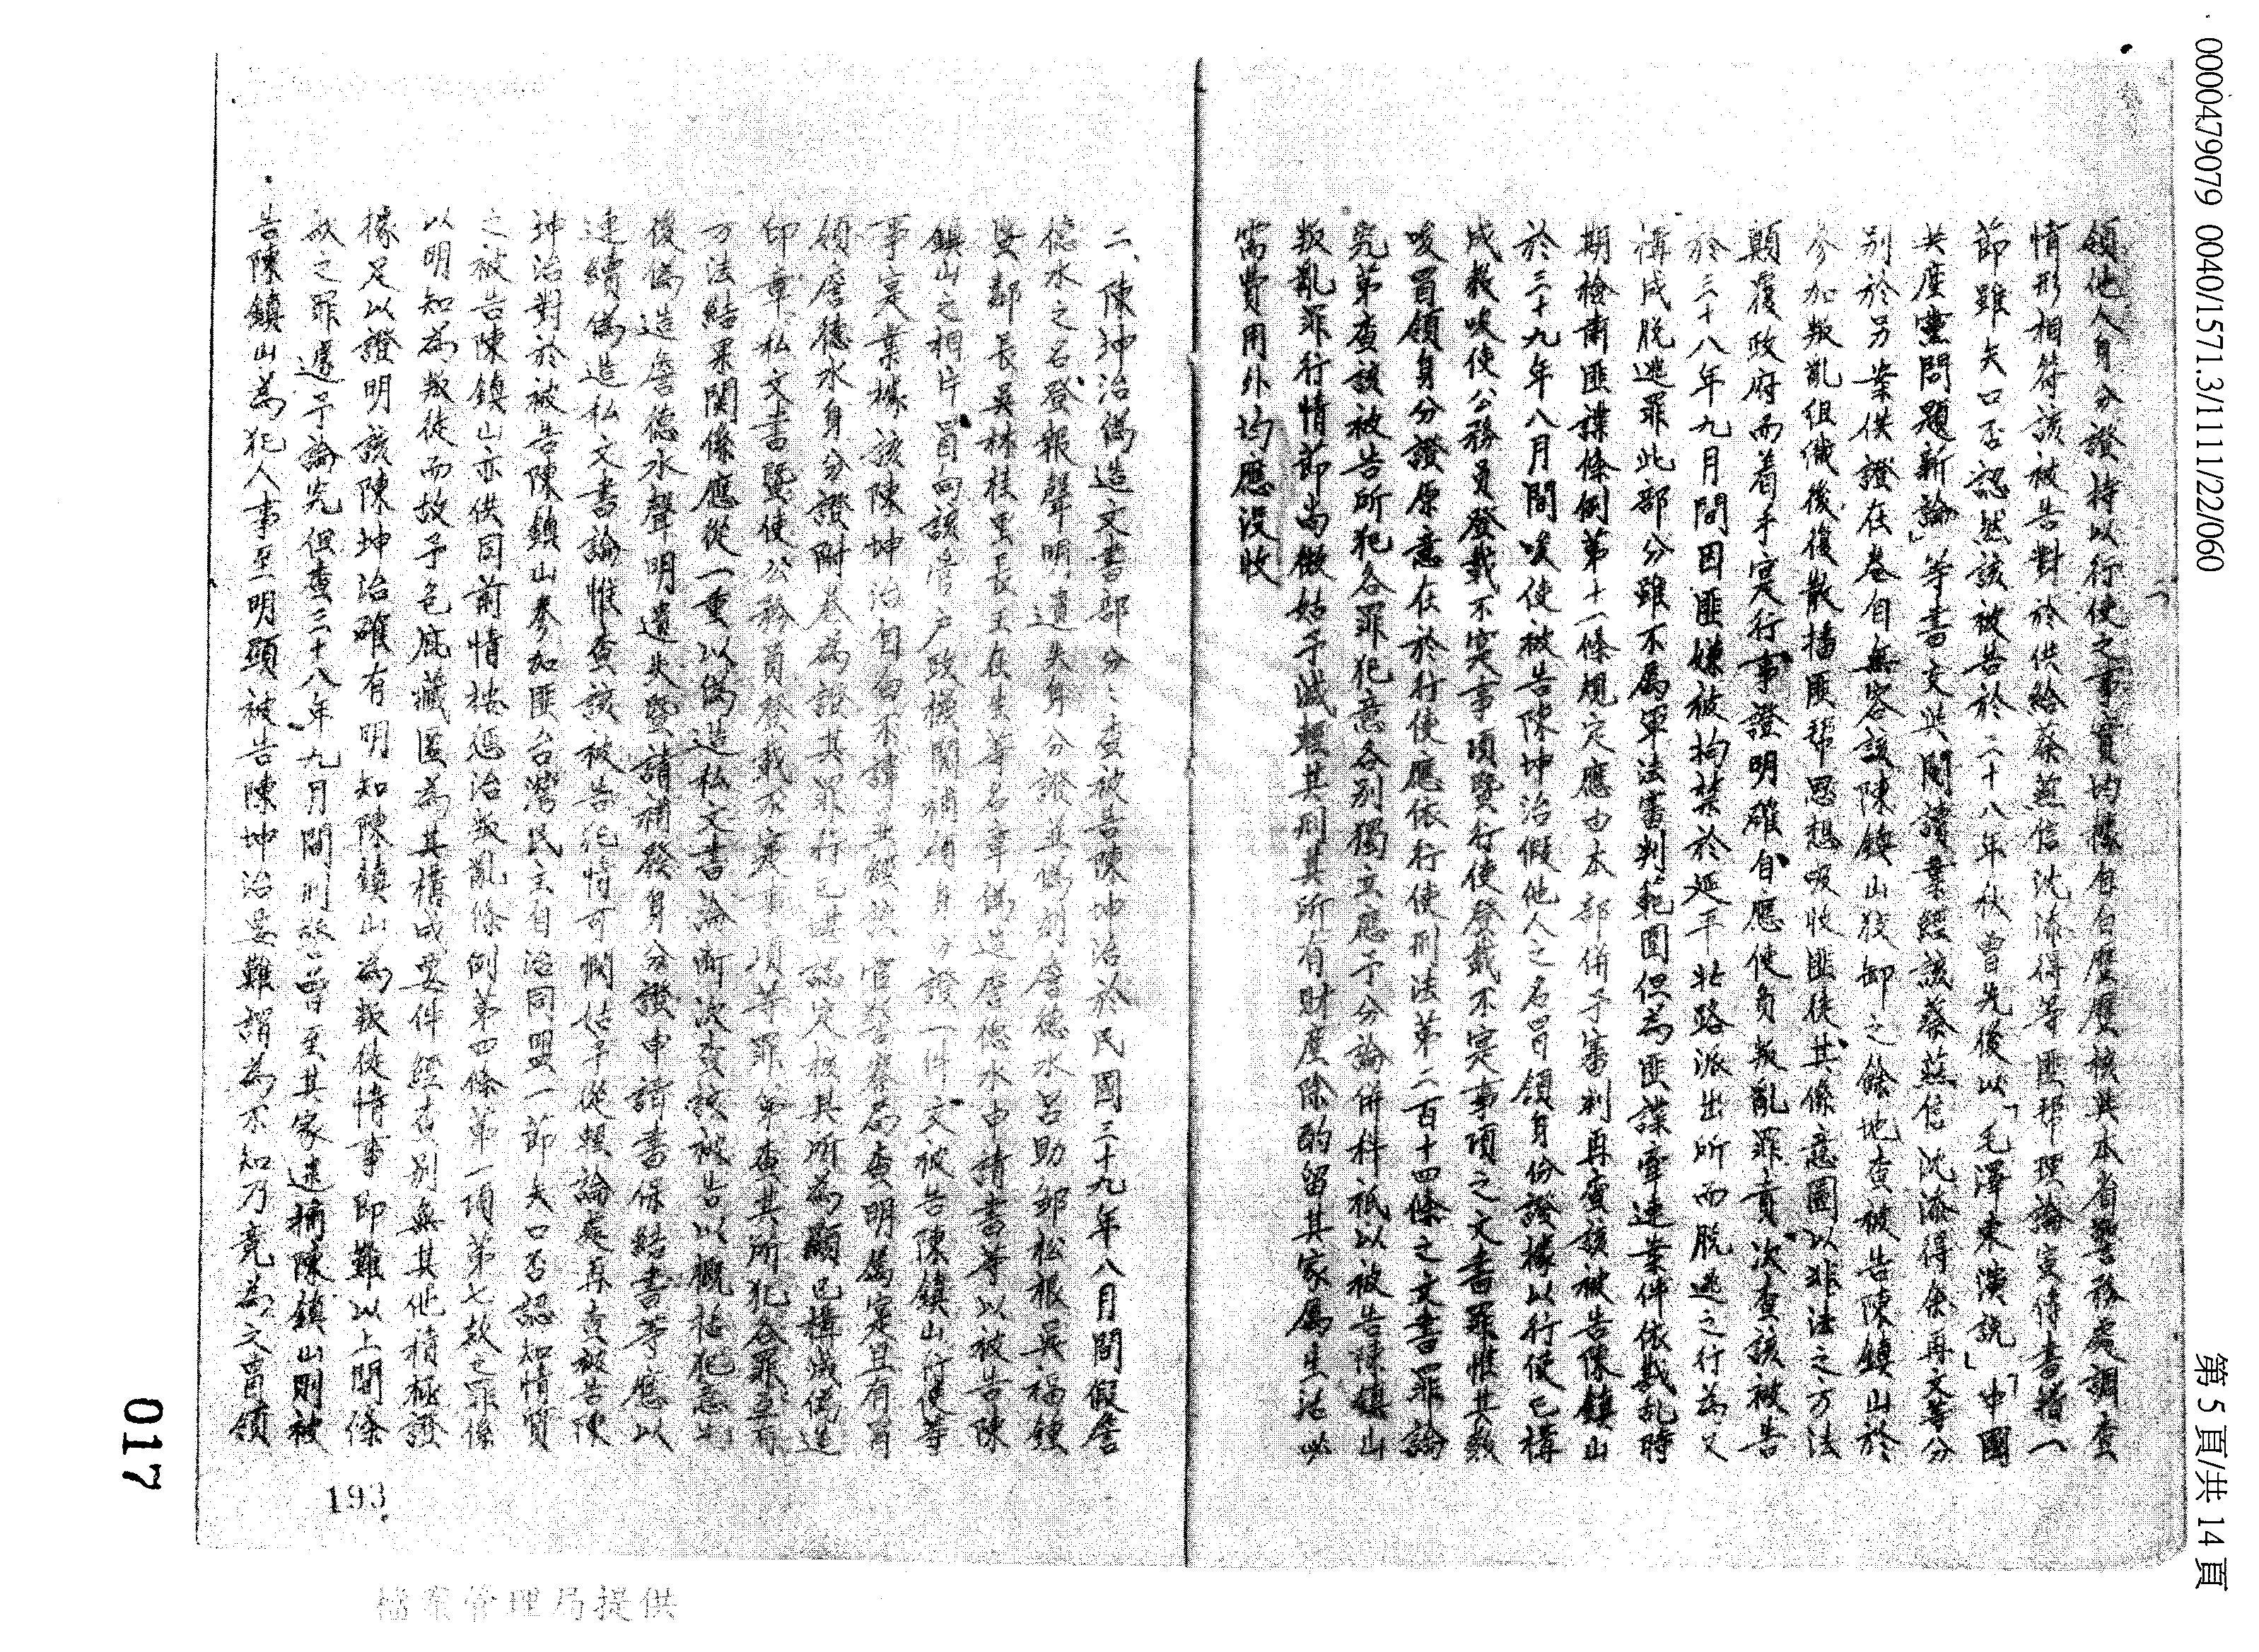 0000479079 0040/1571.3/1111/22/060
第 5 頁/共 14 頁
領他人身分證持以行使之事實均據自白歷歷核其本省警務處調查
情形相符該被告對於供給蔡燕信沈添得等匪幫理論宣傳書籍一
節雖矢口否認然該被告於三十八年秋曾先後以「毛澤東演說」「中國
共產黨問題新論」等書交共閱讀業經該蔡燕信沈添得余再文等分
別於另案供證在卷自無容該陳鎮山狡卸之餘地查被告陳鎮山於
參加叛亂組織後復散播匪幫思想吸收匪徒其係意圖以非法之方法
顛覆政府而着手實行事證明確自應使負叛亂罪責次查該被告
於三十八年九月間因匪嫌被拘禁於延平北路派出所而脫逃之行為又
構成脫逃罪此部分雖不屬軍法審判範圍但為匪諜牽連案件依戡乱時
期檢肅匪諜條例第十一條規定應由本部併予審判再查該被告陳鎮山
於三十九年八月間唆使被告陳坤治假他人之名冒領身份證據以行使已構
成教唆使公務員登載不實事項暨行使登載不實事項之文書罪惟其教
唆冒領身分證原意在於行使應依行使刑法第二百十四條之文書罪論
究第查該被告所犯各罪犯意各別獨立應予分論併科祇以被告陳鎮山
叛亂罪行情節尚微姑予減輕其刑其所有財產除酌留其家屬生活必
需費用外均應沒收
二、陳坤治偽造文書部分：查被告陳坤治於民國三十九年八月間假詹
德水之名登報聲明遺失身分證並偽刻詹德水呂助鄒松根吳福鍾
暨鄰長吳林桂里長王在生等名章偽造詹德水申請書等以被告陳
鎮山之相片冒向該管戶政機關補領身分證一件交被告陳鎮山行使等
事實業據該陳坤治自白不諱並經派官警察局查明屬實且有冒
領詹德水身分證附卷為證其罪行已堪認定核其所為顯已構成偽造
印章私文書暨使公務員登載不實事項等罪第查其所犯各罪互有
方法結果関係應從一重以偽造私文書論斷次查該被告以概括犯意先
後偽造詹德水聲明遺失暨請補發身分證申請書保結書等應以
連續偽造私文書論惟查該被告犯情可憫姑予從輕論處再查被告陳
坤治對於被告陳鎮山參加匪台灣民主自治同盟一節矢口否認知情質
之被告陳鎮山亦供同前情按懲治叛亂條例第四條第一項第七款之罪係
以明知為叛徒而故予包庇藏匿為其構成要件經查別無其他積極證
據足以證明該陳坤治確有明知陳鎮山為叛徒情事即難以上開條
款之罪遽予論究但查三十八年九月間刑警曾至其家逮捕陳鎮山則被
告陳鎮山為犯人事至明顯被告陳坤治要難謂為不知乃竟為之冒領
017
193
檔案管理局提供